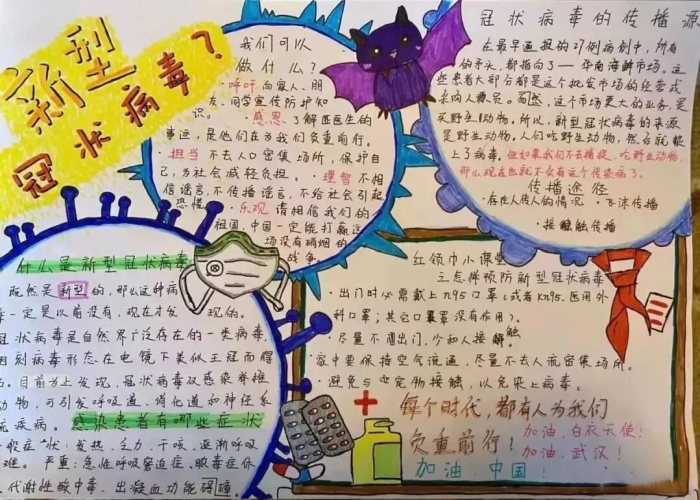 新型
冠状病毒?
我们可以
做什么?
·呼吁向家人、朋
友、同学宣传防护知
识。 ·感恩了解医医生的
事迹,是他们在为我们负重前行。
·担当 不去人口密集场所,保护自
己,为社会减轻负担。 ·理智不相
信谣言,不传播谣言,不给社会引起
恐慌 ·乐观 请相信我们的
祖国,中国一定能打赢这
场没有硝烟的
战争
冠状病毒的传播源
在最早通报的27例病例中,所有
的矛头,都指向了——华南海鲜市场。这
些患者大部分都是这个批发市场的经营或
采购人员。而然,这个市场更大的业务,是
买野生动物。所以,新型冠状病毒的来源
是野生动物。人们吃野生动物,然后就染
上了病毒。但如果我们不去捕捉、吃野生动物,
那么现在也就不会有这个传染病了。
传播途径
·存在人传人的情况 ·飞沫传播
·接触传播
什么是新型冠状病毒
既然是新型的,那么这种病
毒一定是以前没有,现在才发现的。
冠状病毒是自然界广泛存在的一类病毒,
因刻病毒形态在电镜下类似王冠而得
名。目前为止发现,冠状病毒仅感染脊椎
动物,可引发呼吸道、消化道和神经系
统疾病。 感染患者有哪些症状
一般症状:发热、乏力、干咳、逐渐呼吸
难。 严重:急性呼吸窘迫症、脓毒症休
代谢性酸中毒、出凝血功能碍障
红领巾小课堂
之怎样预防新型冠状病毒
·出门时必需戴上n95口罩(或者Kn95、医用外
科口罩;其它口罩没有作用)。
·尽量不遛出门,少和人接触
·家中要保持空气流通,尽量不去人流密集场所。
避免与动物接触,以免染上病毒。
每个时代,都有人为我们
负重前行? 加油,白衣天使!
加油,武汉!
加油,中国!